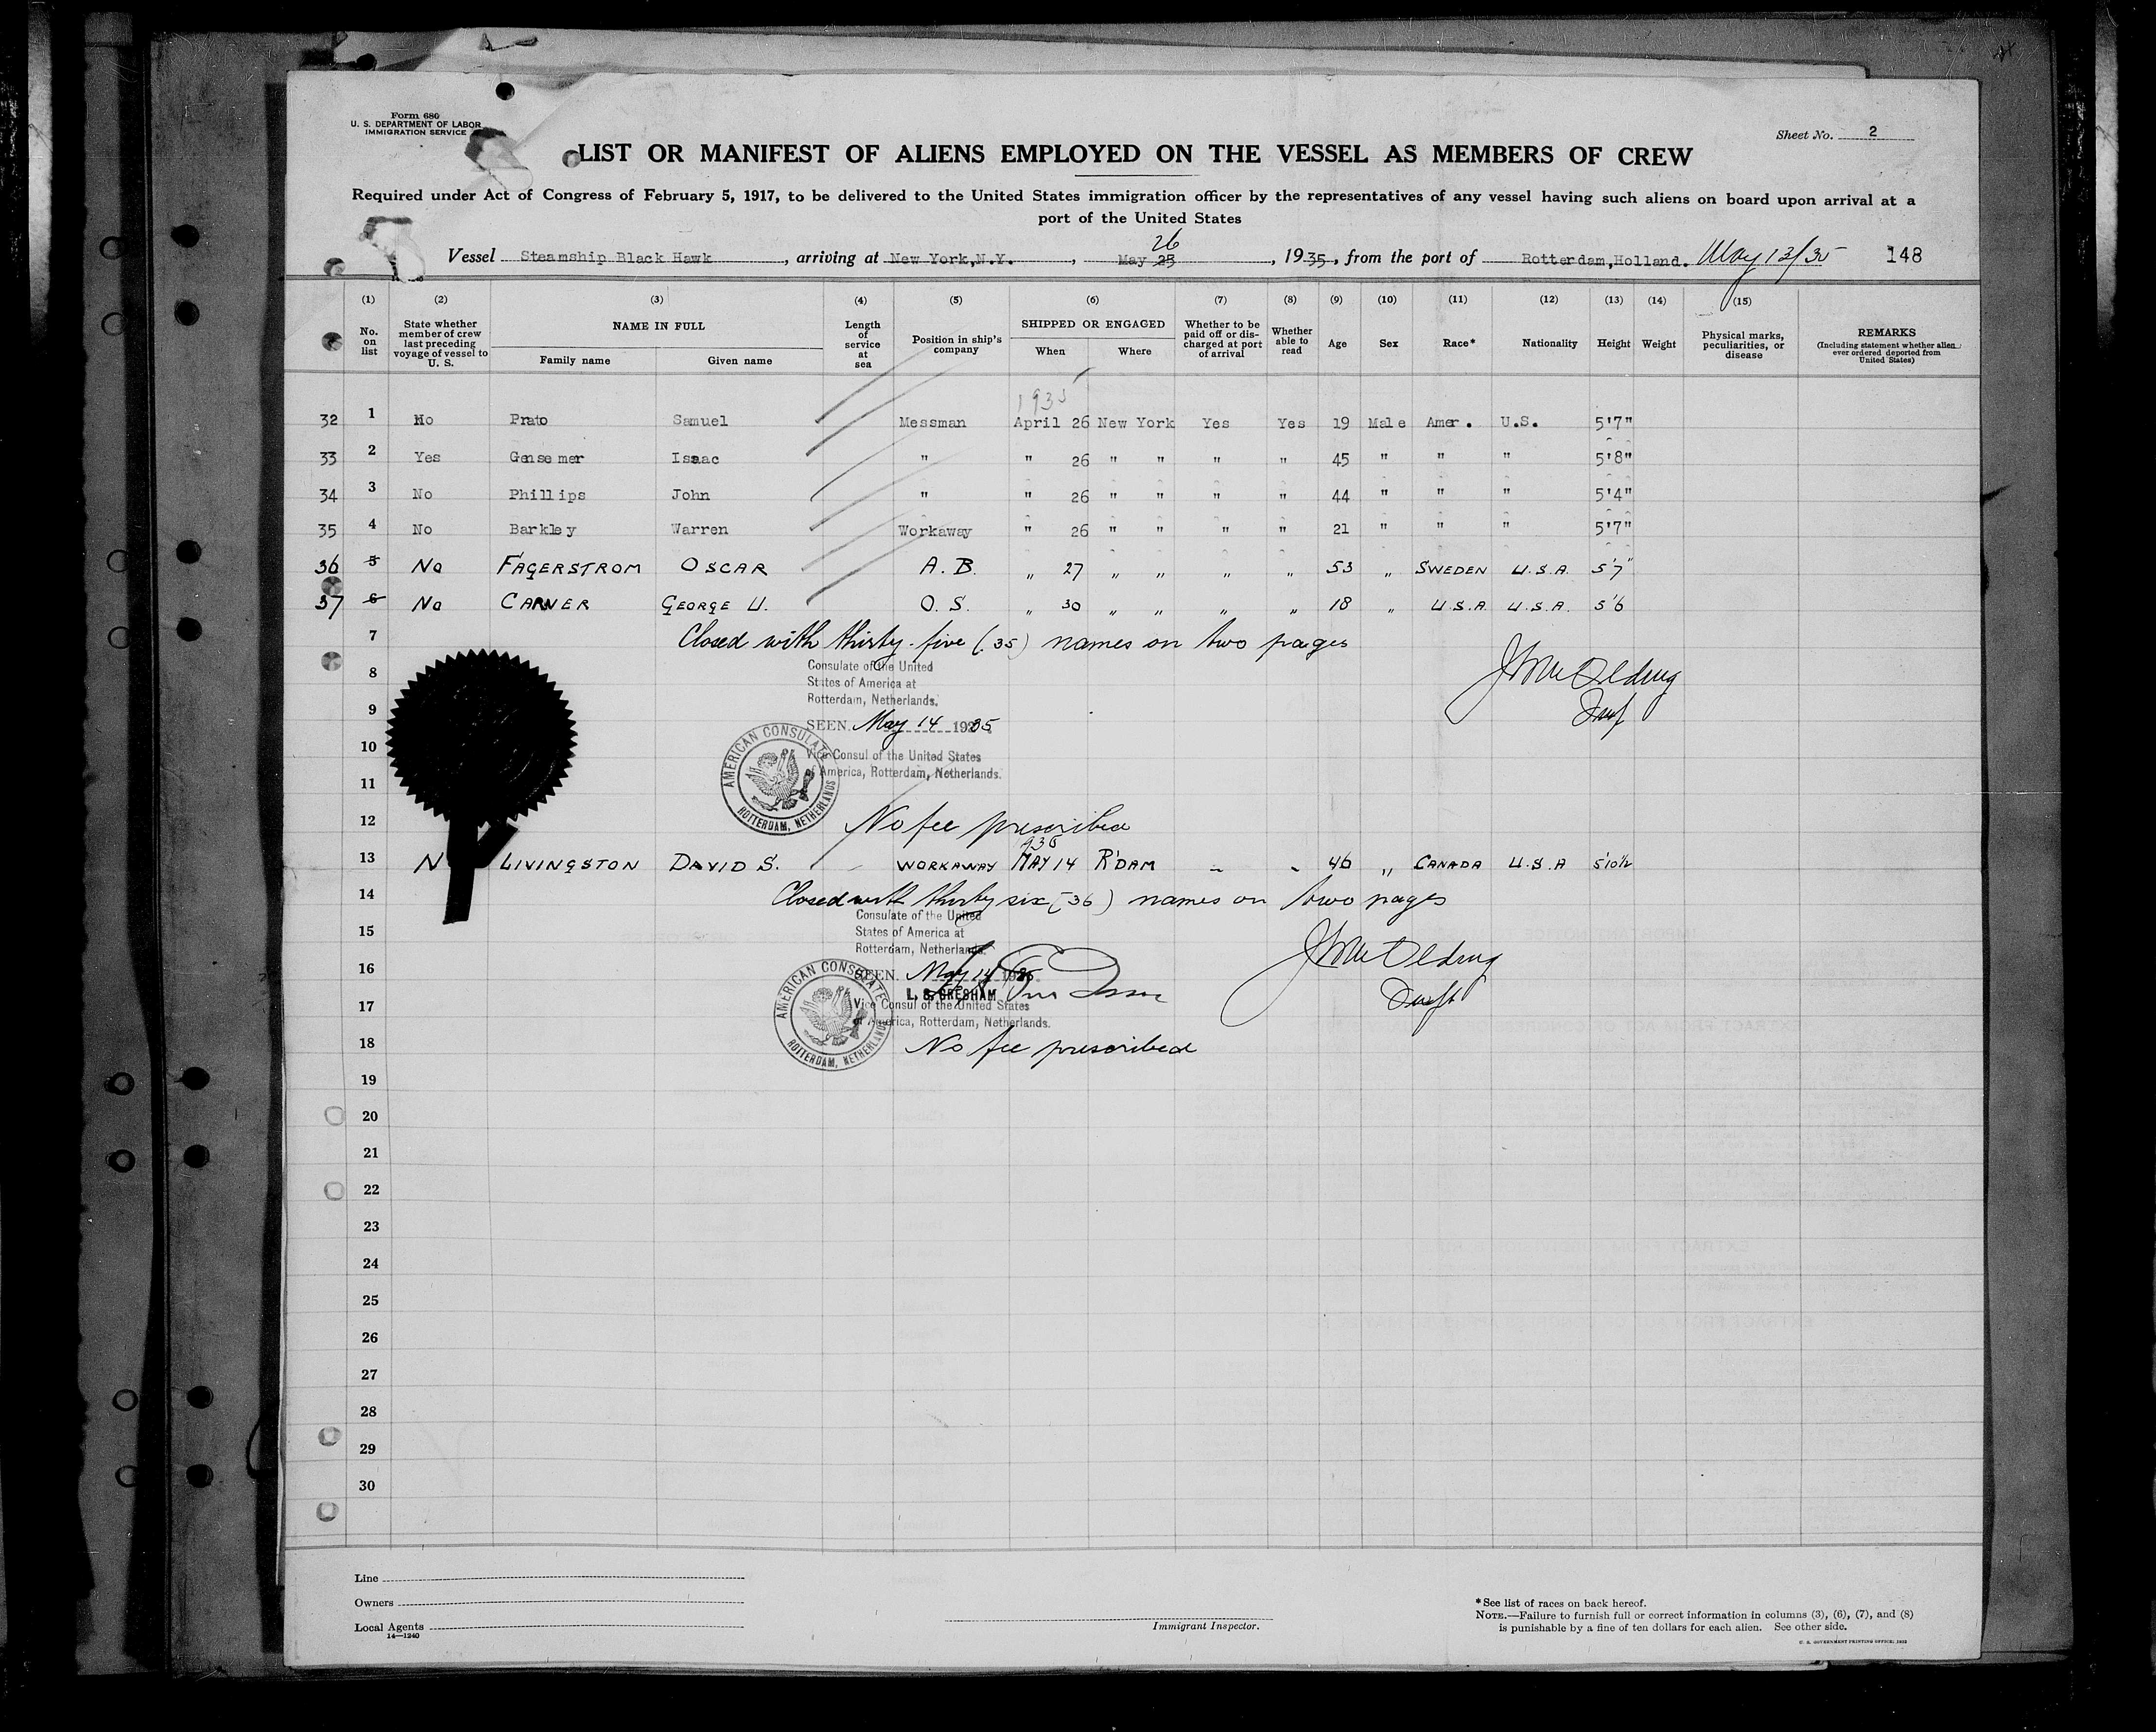 Form 680
U. S. DEPARTMENT OF LABOR
IMMIGRATION SERVICE
Sheet No. 2
LIST OR MANIFEST OF ALIENS EMPLOYED ON THE VESSEL AS MEMBERS OF CREW
Required under Act of Congress of February 5, 1917, to be delivered to the United States immigration officer by the representatives of any vessel having such aliens on board upon arrival at a
port of the United States
26
Vessel Steamship Black Hawk, arriving at New York, N.Y., May 25, 1935, from the port of Rotterdam, Holland. May 13/35 148
(1) (2) (3) (4) (5) (6) (7) (8) (9) (10) (11) (12) (13) (14) (15)
No. on list
State whether member of crew last preceding voyage of vessel to U. S.
NAME IN FULL
Family name Given name
Length of service at sea
Position in ship's company
SHIPPED OR ENGAGED
When Where
Whether to be paid off or discharged at port of arrival
Whether able to read
Age Sex Race* Nationality Height Weight
Physical marks, peculiarities, or disease
REMARKS
(Including statement whether alien ever ordered deported from United States)
1935
32 1 No Prato Samuel Messman April 26 New York Yes Yes 19 Male Amer. U.S. 5'7"
33 2 Yes Gensemer Isaac " " 26 " " " " 45 " " " 5'8"
34 3 No Phillips John " " 26 " " " " 44 " " " 5'4"
35 4 No Barkley Warren Workaway " 26 " " " " 21 " " " 5'7"
36 5 No FAGERSTROM OSCAR A. B. " 27 " " " " 53 " SWEDEN U.S.A. 5'7"
37 6 No CARVER GEORGE U. O. S. " 30 " " " " 18 " U.S.A. U.S.A. 5'6
7 Closed with thirty-five (35) names on two pages
8 Consulate of the United
States of America at
Rotterdam, Netherlands.
9 SEEN May 14 1935
10 Vice Consul of the United States
of America, Rotterdam, Netherlands.
AMERICAN CONSULATE
ROTTERDAM, NETHERLANDS
11
12 No fee prescribed
1935
13 N LIVINGSTON DAVID S. WORKAWAY MAY 14 R'DAM " " 46 " CANADA U.S.A 5'10½
14 Closed with thirty six (36) names on two pages
Consulate of the United
15 States of America at
Rotterdam, Netherlands.
16 SEEN. May 14 1935
L. S. GRESHAM
17 Vice Consul of the United States
of America, Rotterdam, Netherlands.
AMERICAN CONSULATE
ROTTERDAM, NETHERLANDS
18 No fee prescribed
19
20
21
22
23
24
25
26
27
28
29
30
Line
Owners
Local Agents
14—1240
Immigrant Inspector.
*See list of races on back hereof.
NOTE.—Failure to furnish full or correct information in columns (3), (6), (7), and (8)
is punishable by a fine of ten dollars for each alien. See other side.
U. S. GOVERNMENT PRINTING OFFICE: 1932